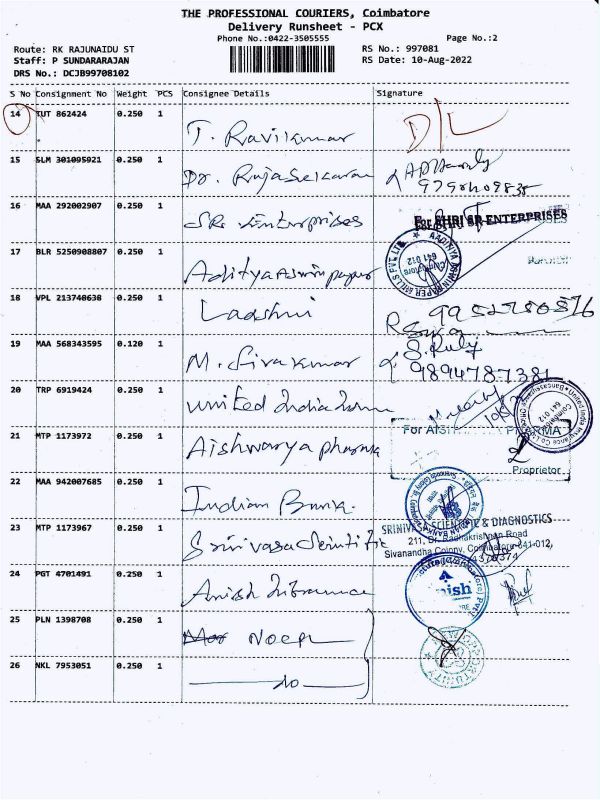 THE PROFESSIONAL COURIERS, Coimbatore
Delivery Runsheet - PCX
Phone No.:0422-3505555
Page No.:2
Route: RK RAJUNAIDU ST
RS No.: 997081
Staff: P SUNDARARAJAN
RS Date: 10-Aug-2022
DRS No.: DCJB99708102
S No Consignment No Weight PCS Consignee Details Signature
14 TUT 862424 0.250 1
T. Ravikumar D/L
15 SLM 301095921 0.250 1
Dr. Rajasekaran
16 MAA 292002907 0.250 1
SRi Enterprises For SHRI SR ENTERPRISES
17 BLR 5250908807 0.250 1
Aditya Aswin paper
ADITYA ASWIN PAPER MILLS PVT LTD
Coimbatore
641 012
18 VPL 213740638 0.250 1
Laxshmi 9952780576
19 MAA 568343595 0.120 1
M. Siva kumar 9894787381
20 TRP 6919424 0.250 1
United India
United India Insurance Co. Ltd.
641 012
21 MTP 1173972 0.250 1
Aishwarya pharma
Proprietor
22 MAA 942007685 0.250 1
Indian Bank
23 MTP 1173967 0.250 1
Srinivasa Scintific
SRINIVASA SCIENTIFIC & DIAGNOSTICS
211, Dr. Radhakrishnan Road
Sivanandha Colony, Coimbatore-641-012,
24 PGT 4701491 0.250 1
Anish Insurance
25 PLN 1398708 0.250 1
26 NKL 7953051 0.250 1